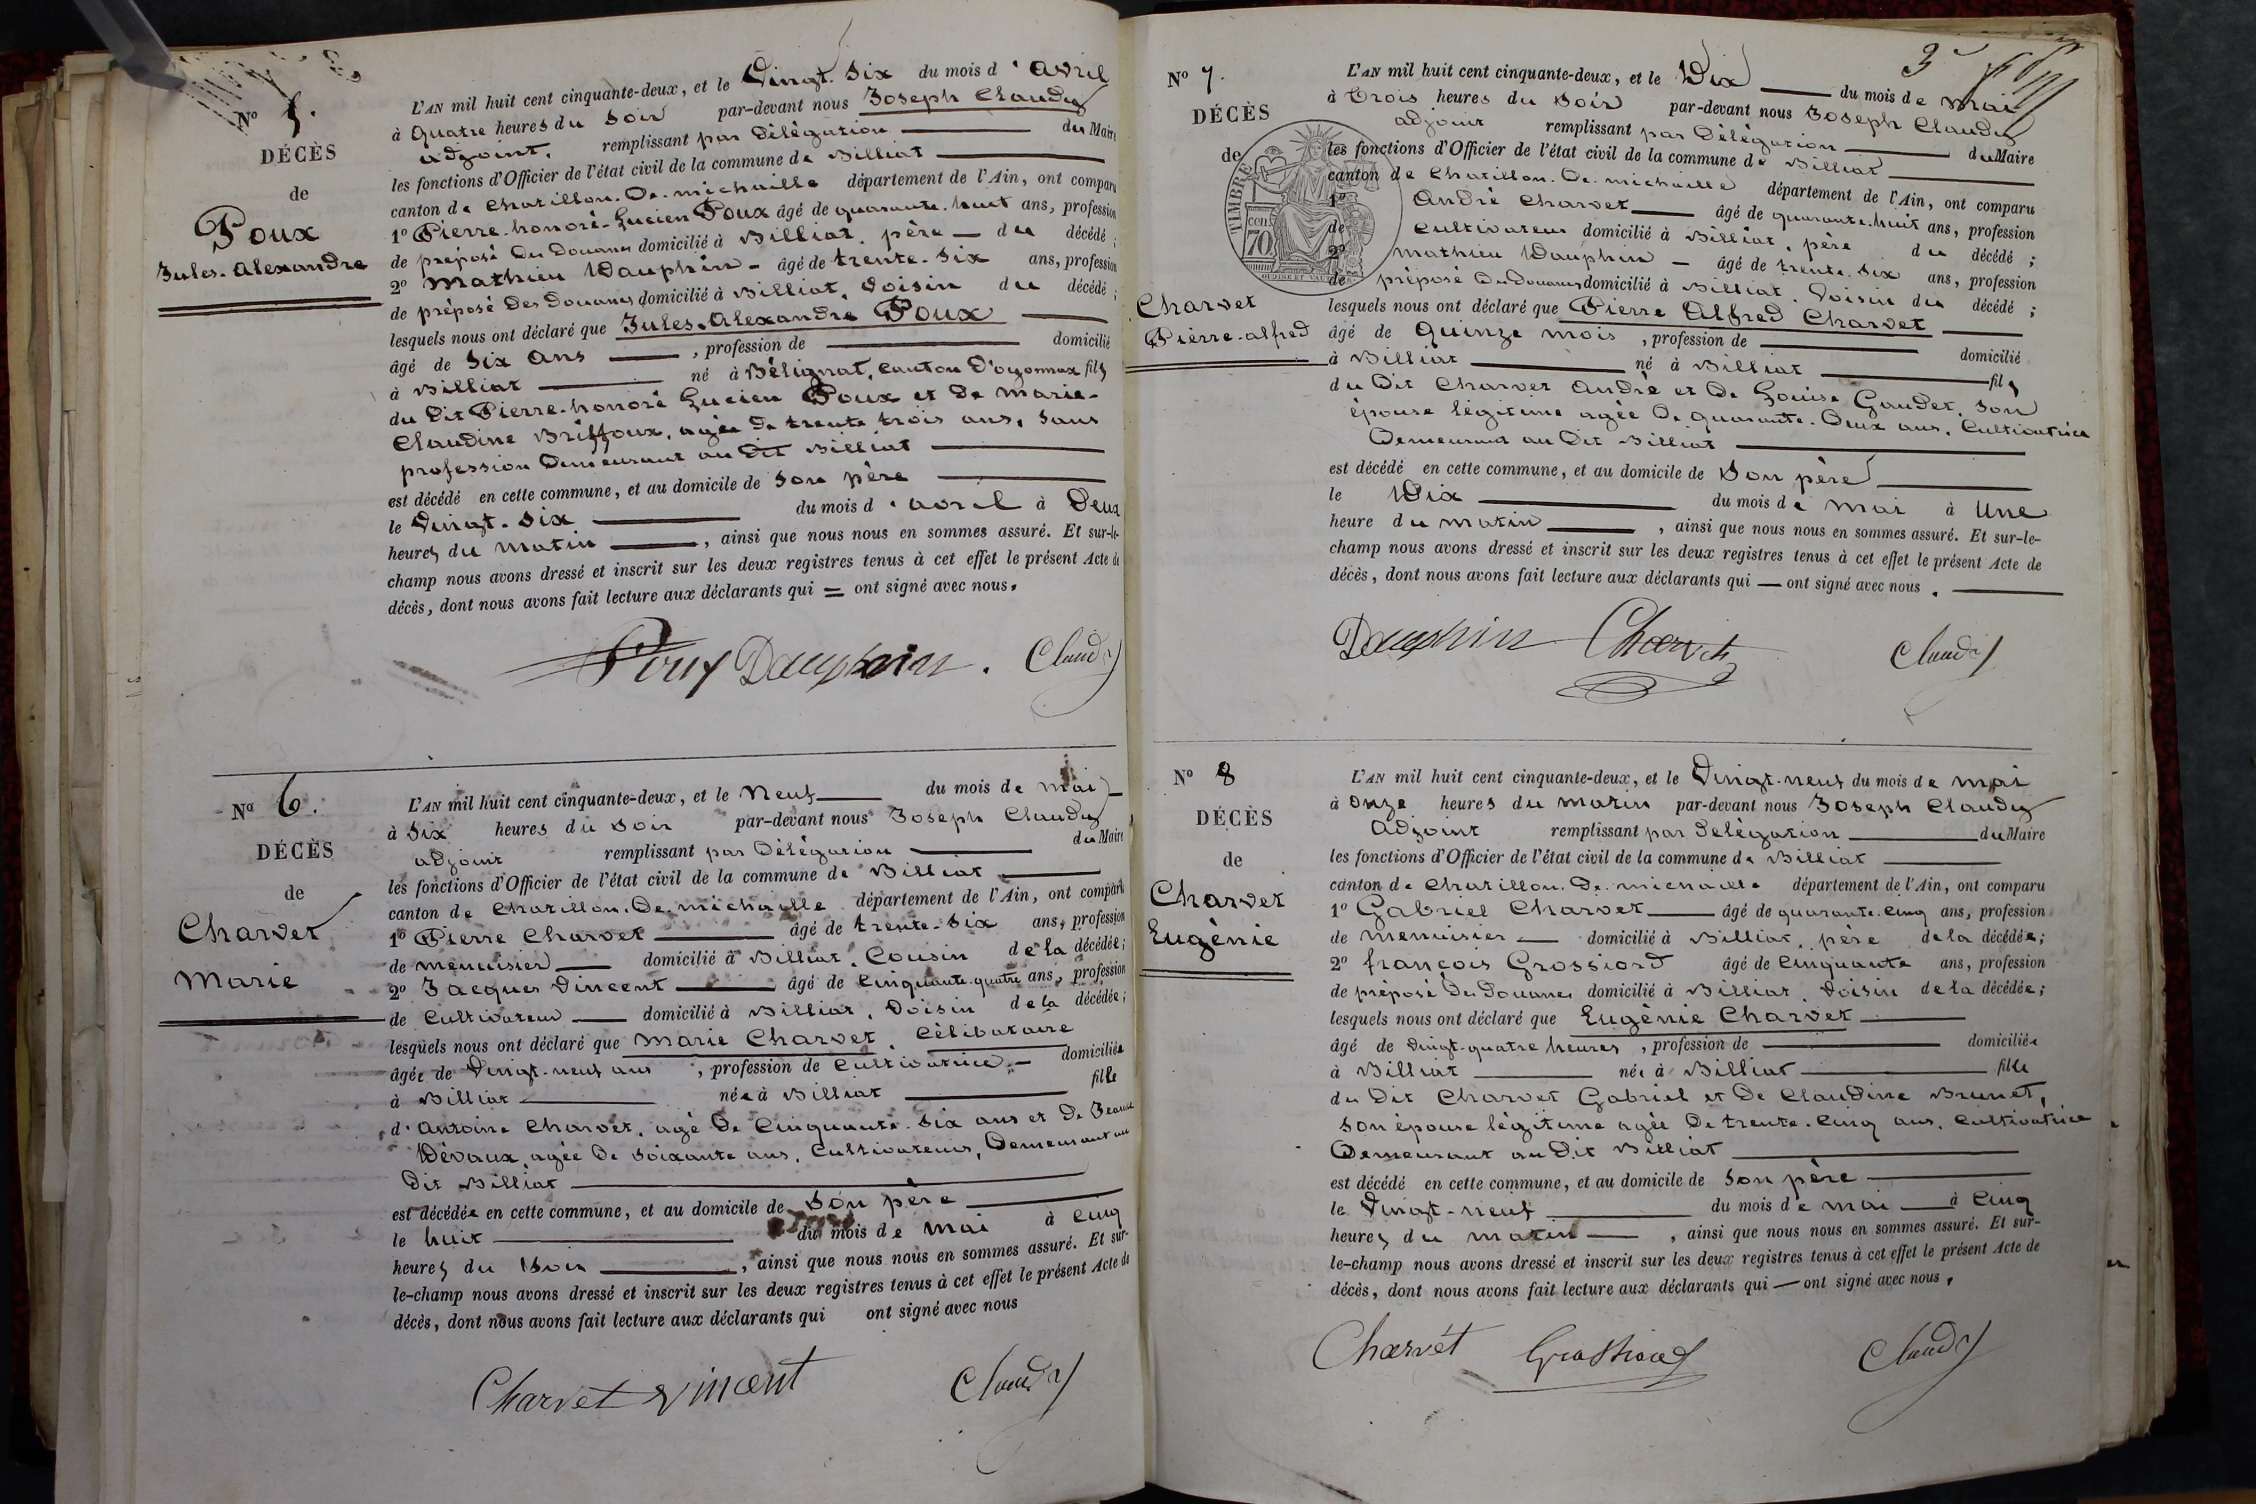 Nº 5.
DÉCÈS
de
Poux
Jules-Alexandre
L'AN mil huit cent cinquante-deux, et le Vingt-Six du mois d'Avril
à Quatre heures du Soir par-devant nous Joseph Claudy
adjoint, remplissant par Délégation du Maire
les fonctions d'Officier de l'état civil de la commune de Billiat
canton de Chatillon-De-michaille département de l'Ain, ont comparu
1º Pierre-honoré-Lucien Poux âgé de quarante-huit ans, profession
de préposé Des Douanes domicilié à Billiat, père du décédé;
2º Mathieu Dauphin âgé de trente-Six ans, profession
de préposé Des Douanes domicilié à Billiat, Voisin du décédé;
lesquels nous ont déclaré que Jules-Alexandre Poux
âgé de Six Ans, profession de domicilié
à Billiat né à Bélignat, Canton D'oyonnax fils
du Dit Pierre-honoré Lucien Poux et De Marie-
Claudine Briffoux, agée De trente trois ans, Sans
profession Demeurant au Dit Billiat
est décédé en cette commune, et au domicile de Son père
le Vingt-Six du mois d'avril à Deux
heures du Matin, ainsi que nous nous en sommes assuré. Et sur-le-
champ nous avons dressé et inscrit sur les deux registres tenus à cet effet le présent Acte de
décès, dont nous avons fait lecture aux déclarants qui = ont signé avec nous.
Poux Dauphin. Claudy
Nº 6.
DÉCÈS
de
Charvet
Marie
L'AN mil huit cent cinquante-deux, et le Neuf du mois de Mai
à Six heures du Soir par-devant nous Joseph Claudy
adjoint remplissant par Délégation du Maire
les fonctions d'Officier de l'état civil de la commune de Billiat
canton de Chatillon-De-michaille département de l'Ain, ont comparu
1º Pierre Charvet âgé de trente-Six ans, profession
de menuisier domicilié à Billiat, Cousin de la décédée;
2º Jacques Vincent âgé de Cinquante-quatre ans, profession
de Cultivateur domicilié à Billiat, Voisin de la décédée;
lesquels nous ont déclaré que Marie Charvet, Célibataire
âgée de Vingt-neuf ans, profession de Cultivatrice domiciliée
à Billiat née à Billiat fille
d'Antoine Charvet, agé De Cinquante-Six ans et De Jeanne
Dévaux, agée De Soixante ans, Cultivateurs, Demeurant au
Dit Billiat
est décédée en cette commune, et au domicile de Son père
le huit du mois de Mai à Cinq
heures du Soir, ainsi que nous nous en sommes assuré. Et sur-
le-champ nous avons dressé et inscrit sur les deux registres tenus à cet effet le présent Acte de
décès, dont nous avons fait lecture aux déclarants qui ont signé avec nous
Charvet Vincent Claudy
3
Nº 7.
DÉCÈS
de
Charvet
Pierre-alfred
TIMBRE
cen
70
L'AN mil huit cent cinquante-deux, et le Dix du mois de Mai
à Trois heures du Soir par-devant nous Joseph Claudy
adjoint remplissant par Délégation du Maire
les fonctions d'Officier de l'état civil de la commune de Billiat
canton de Chatillon-De-michaille département de l'Ain, ont comparu
1º André Charvet âgé de quarante-huit ans, profession
de Cultivateur domicilié à Billiat, père du décédé;
2º Mathieu Dauphin âgé de trente-Six ans, profession
de préposé Des Douanes domicilié à Billiat, Voisin du décédé;
lesquels nous ont déclaré que Pierre Alfred Charvet
âgé de Quinze mois, profession de domicilié
à Billiat né à Billiat fils
du Dit Charvet André et De Louise Gaudet, Son
épouse légitime agée De quarante-Deux ans, Cultivatrice
Demeurant au Dit Billiat
est décédé en cette commune, et au domicile de Son père
le Dix du mois de Mai à Une
heure du Matin, ainsi que nous nous en sommes assuré. Et sur-le-
champ nous avons dressé et inscrit sur les deux registres tenus à cet effet le présent Acte de
décès, dont nous avons fait lecture aux déclarants qui — ont signé avec nous.
Dauphin Charvet Claudy
Nº 8
DÉCÈS
de
Charvet
Eugènie
L'AN mil huit cent cinquante-deux, et le Vingt-neuf du mois de Mai
à Onze heures du Matin par-devant nous Joseph Claudy
Adjoint remplissant par Delégation du Maire
les fonctions d'Officier de l'état civil de la commune de Billiat
canton de Chatillon-De-michaille département de l'Ain, ont comparu
1º Gabriel Charvet âgé de quarante-Cinq ans, profession
de Menuisier domicilié à Billiat, père de la décédée;
2º françois Grossiord âgé de Cinquante ans, profession
de préposé Des Douanes domicilié à Billiat, Voisin de la décédée;
lesquels nous ont déclaré que Eugènie Charvet
âgé de Vingt-quatre heures, profession de domiciliée
à Billiat née à Billiat fille
du Dit Charvet Gabriel et De Claudine Brunet,
Son épouse légitime agée De trente-Cinq ans, Cultivatrice
Demeurant au Dit Billiat
est décédé en cette commune, et au domicile de Son père
le Vingt-neuf du mois de Mai à Cinq
heures du Matin, ainsi que nous nous en sommes assuré. Et sur-
le-champ nous avons dressé et inscrit sur les deux registres tenus à cet effet le présent Acte de
décès, dont nous avons fait lecture aux déclarants qui — ont signé avec nous.
Charvét Grossiord Claudy